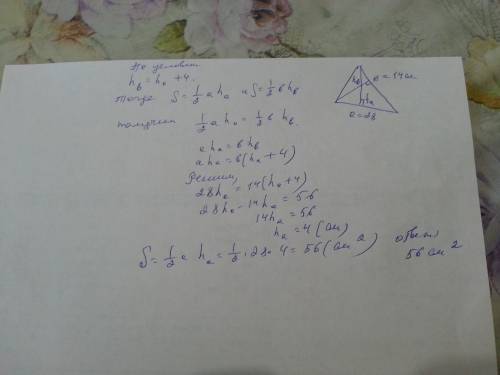 По условию
h_b = h_a + 4.
Тогда S = 1/2 a h_a и S = 1/2 b h_b
получим 1/2 a h_a = 1/2 b h_b
a h_a = b h_b
a h_a = b (h_a + 4)
Решим,
28h_a = 14(h_a + 4)
28h_a - 14h_a = 56
14h_a = 56
h_a = 4 (см)
S = 1/2 a h_a = 1/2 · 28 · 4 = 56 (см²) ответ
56 см²
h_b
b = 14см
h_a
a = 28